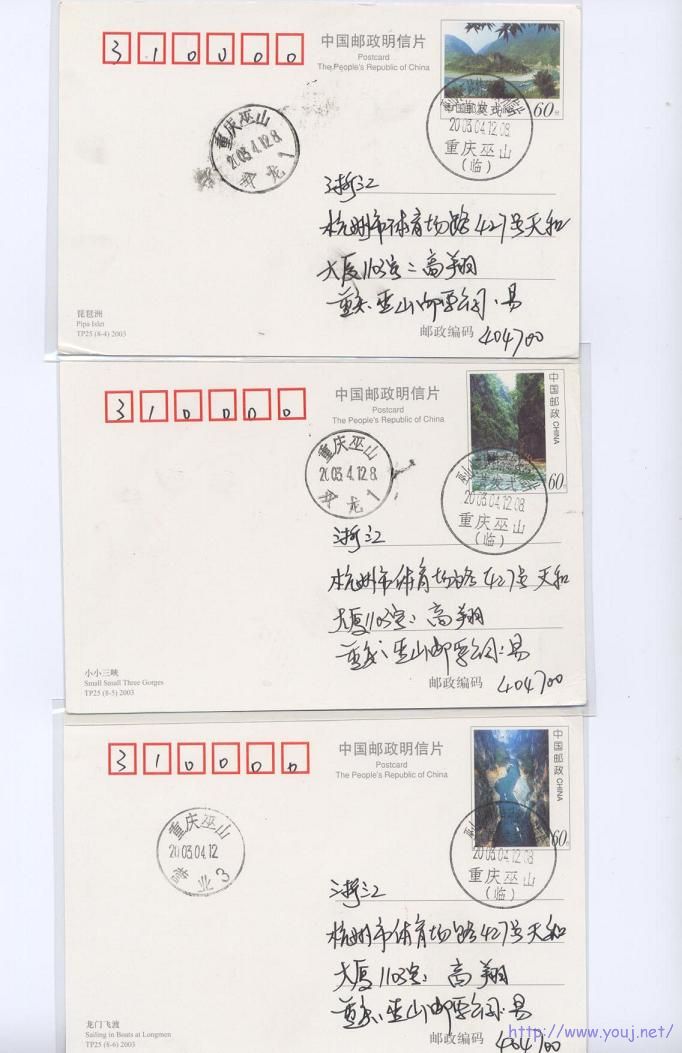 310000
中国邮政明信片
Postcard
The People's Republic of China
中国邮政
60
重庆巫山
2003.4.12.8
龙1
首发式
2003.04.12.08
重庆巫山
(临)
浙江
杭州市体育场路427号天和
大厦1103室: 高翔
重庆: 巫山邮票公司:易
琵琶洲
Pipa Islet
TP25 (8-4) 2003
邮政编码 404700
310000
中国邮政明信片
Postcard
The People's Republic of China
中国邮政 CHINA
60
重庆巫山
2003.4.12.8
龙1
首发式
2003.04.12.08
重庆巫山
(临)
浙江
杭州市体育场路427号天和
大厦1103室: 高翔
重庆: 巫山邮票公司:易
小小三峡
Small Small Three Gorges
TP25 (8-5) 2003
邮政编码 404700
310000
中国邮政明信片
Postcard
The People's Republic of China
中国邮政 CHINA
60
重庆巫山
2003.04.12
营业3
2003.04.12.08
重庆巫山
(临)
浙江
杭州市体育场路427号天和
大厦1103室: 高翔
重庆: 巫山邮票公司:易
龙门飞渡
Sailing in Boats at Longmen
TP25 (8-6) 2003
邮政编码 404700
http://www.youj.net/